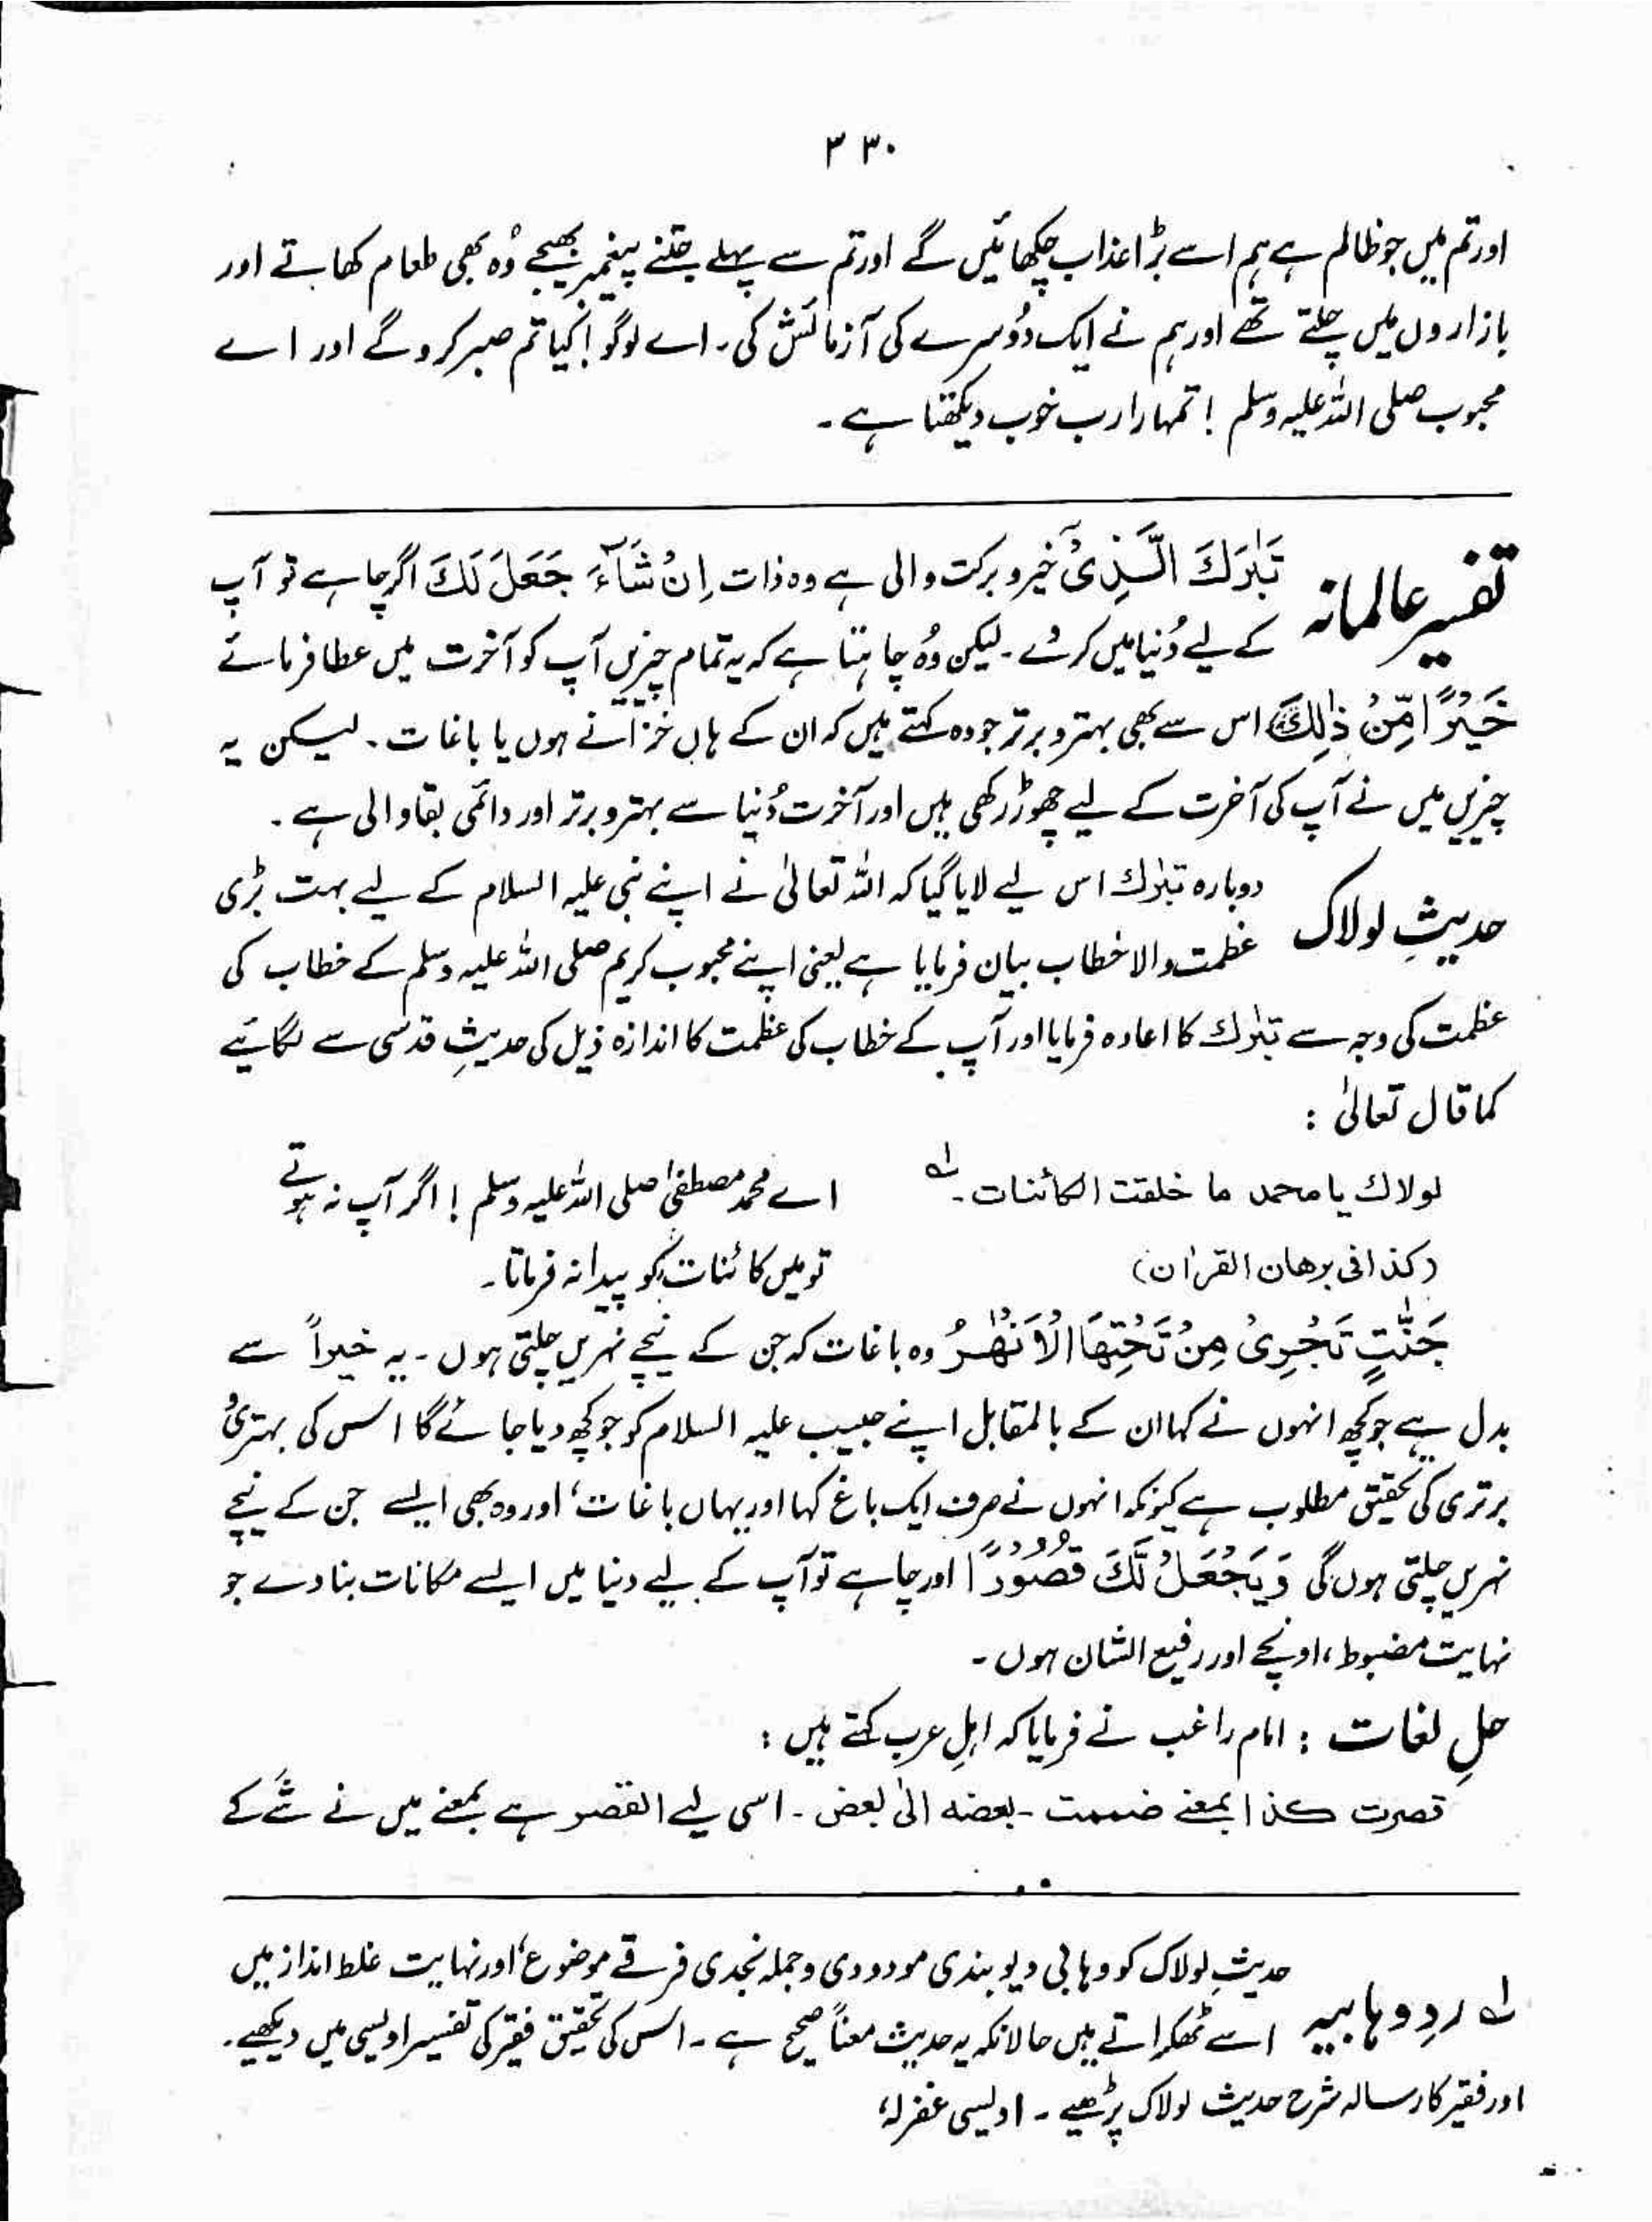 ۳۳۰
اور تم میں جو ظالم ہے ہم اسے بڑا عذاب چکھائیں گے اور تم سے پہلے جتنے پیغمبر بھیجے وُہ بھی طعام کھاتے اور
بازاروں میں چلتے تھے اور ہم نے ایک دُوسرے کی آزمائش کی۔ اے لوگو! کیا تم صبر کرو گے اور اے
محبوب صلی اللہ علیہ وسلم ! تمہارا رب خوب دیکھتا ہے۔
تفسیر عالمانہ تَبٰرَكَ الَّذِیْ خیر و برکت والی ہے وہ ذات اِنْ شَآءَ جَعَلَ لَكَ اگر چاہے تو آپ
کے لیے دُنیا میں کر دے۔ لیکن وُہ چاہتا ہے کہ یہ تمام چیزیں آپ کو آخرت میں عطا فرمائے
خَیْرًا مِّنْ ذٰلِكَ اس سے بھی بہتر و برتر جو وہ کہتے ہیں کہ ان کے ہاں خزانے ہوں یا باغات۔ لیکن یہ
چیزیں میں نے آپ کی آخرت کے لیے چھوڑ رکھی ہیں اور آخرت دُنیا سے بہتر و برتر اور دائمی بقا والی ہے۔
حدیثِ لولاک دوبارہ تبٰرك اس لیے لایا گیا کہ اللہ تعالیٰ نے اپنے نبی علیہ السلام کے لیے بہت بڑی
عظمت والا خطاب بیان فرمایا ہے یعنی اپنے محبوب کریم صلی اللہ علیہ وسلم کے خطاب کی
عظمت کی وجہ سے تبٰرك کا اعادہ فرمایا اور آپ کے خطاب کی عظمت کا اندازہ ذیل کی حدیثِ قدسی سے لگائیے
کما قال تعالیٰ :
لولاك یا محمد ما خلقت الکائنات۔ لے اے محمد مصطفیٰ صلی اللہ علیہ وسلم ! اگر آپ نہ ہوتے
(کذا فی برھان القرآن) تو میں کائنات کو پیدا نہ فرماتا۔
جَنّٰتٍ تَجْرِیْ مِنْ تَحْتِهَا الْاَنْهٰرُ وہ باغات کہ جن کے نیچے نہریں چلتی ہوں۔ یہ خیراً سے
بدل ہے جو کچھ انہوں نے کہا ان کے بالمقابل اپنے حبیب علیہ السلام کو جو کچھ دیا جائے گا اس کی بہتری
برتری کی تحقیق مطلوب ہے کیونکہ انہوں نے صرف ایک باغ کہا اور یہاں باغات، اور وہ بھی ایسے جن کے نیچے
نہریں چلتی ہوں گی وَیَجْعَلْ لَّكَ قُصُوْرًا اور چاہے تو آپ کے لیے دنیا میں ایسے مکانات بنا دے جو
نہایت مضبوط، اونچے اور رفیع الشان ہوں۔
حلِ لغات : امام راغب نے فرمایا کہ اہلِ عرب کہتے ہیں :
قصرت کذا بمعنے ضممت۔ بعضه الیٰ بعض۔ اسی لیے القصر ہے بمعنے میں نے شَے کے
لے ردِ وہابیہ حدیثِ لولاک کو وہابی دیوبندی مودودی و جملہ نجدی فرقے موضوع، اور نہایت غلط انداز میں
اسے ٹھکراتے ہیں حالانکہ یہ حدیث معناً صحیح ہے۔ اس کی تحقیق فقیر کی تفسیر اویسی میں دیکھیے۔
اور فقیر کا رسالہ شرح حدیث لولاک پڑھیے۔ اویسی غفرلہٗ